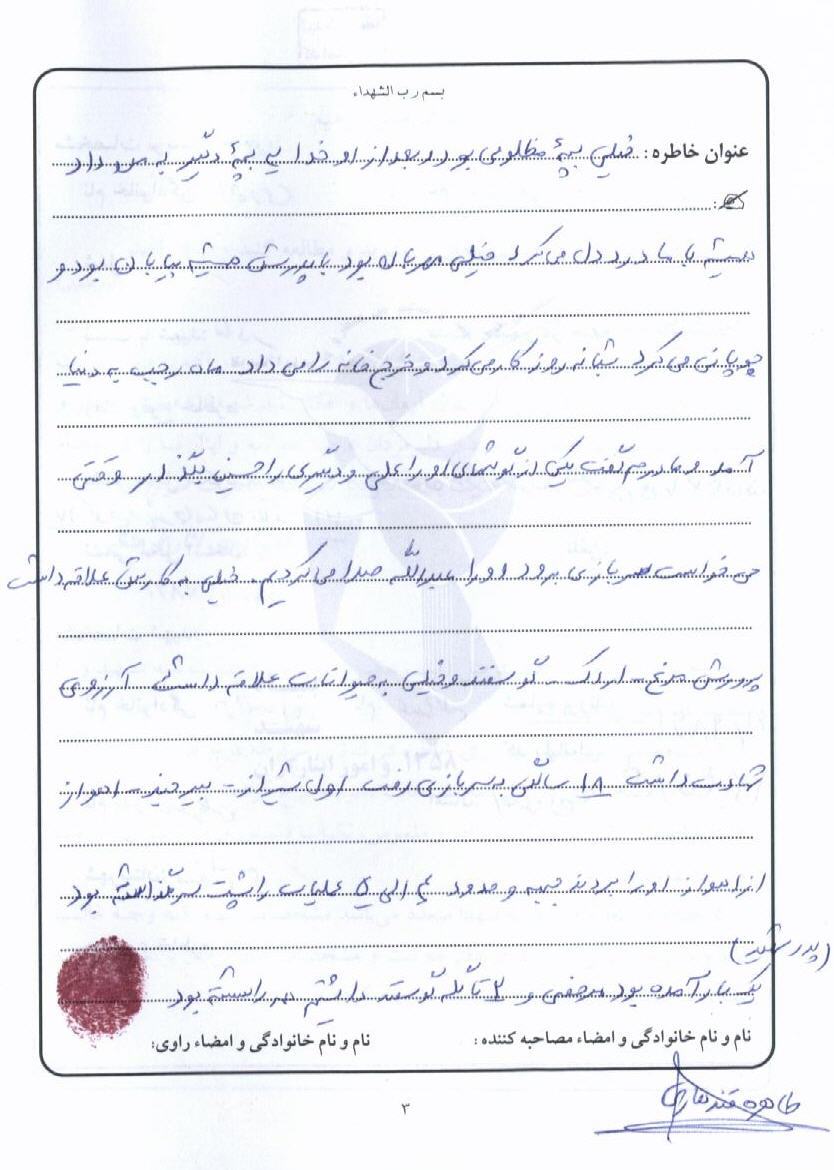 بسم رب الشهداء
عنوان خاطره: خیلی بچهٔ مظلومی بود و بعد از او خدا یه بچهٔ دیگر به من داد
همیشه با ما درد دل می‌کرد خیلی مهربان بود با پدرش همیشه بیابان بود و
چوپانی می‌کرد شبانه روز کار می‌کرد و خرج خانه را می داد ماه رجب به دنیا
آمد و مادرم گفت یکی از گوشهای او را علی و دیگری را حسین بگذار وقتی
می خواست سربازی برود او را عبدالله صدا می‌کردیم. خیلی به کارش علاقه داشت
پرورش مرغ - اردک - گوسفند و خیلی به حیوانات علاقه داشت آرزوی
شهادت داشت ۱۸ سالگی به سربازی رفت اول شیراز - بیرجند - اهواز
از اهواز او را بردند جبهه و حدود ۴ الی ۵ عملیات را پشت سر گذاشته بود
(پدر شهید)
یک بار آمده بود مرخصی و ۲ تا گله گوسفند داشتیم بود
نام و نام خانوادگی و امضاء مصاحبه کننده: نام و نام خانوادگی و امضاء راوی:
طاهره قندهاری
۳